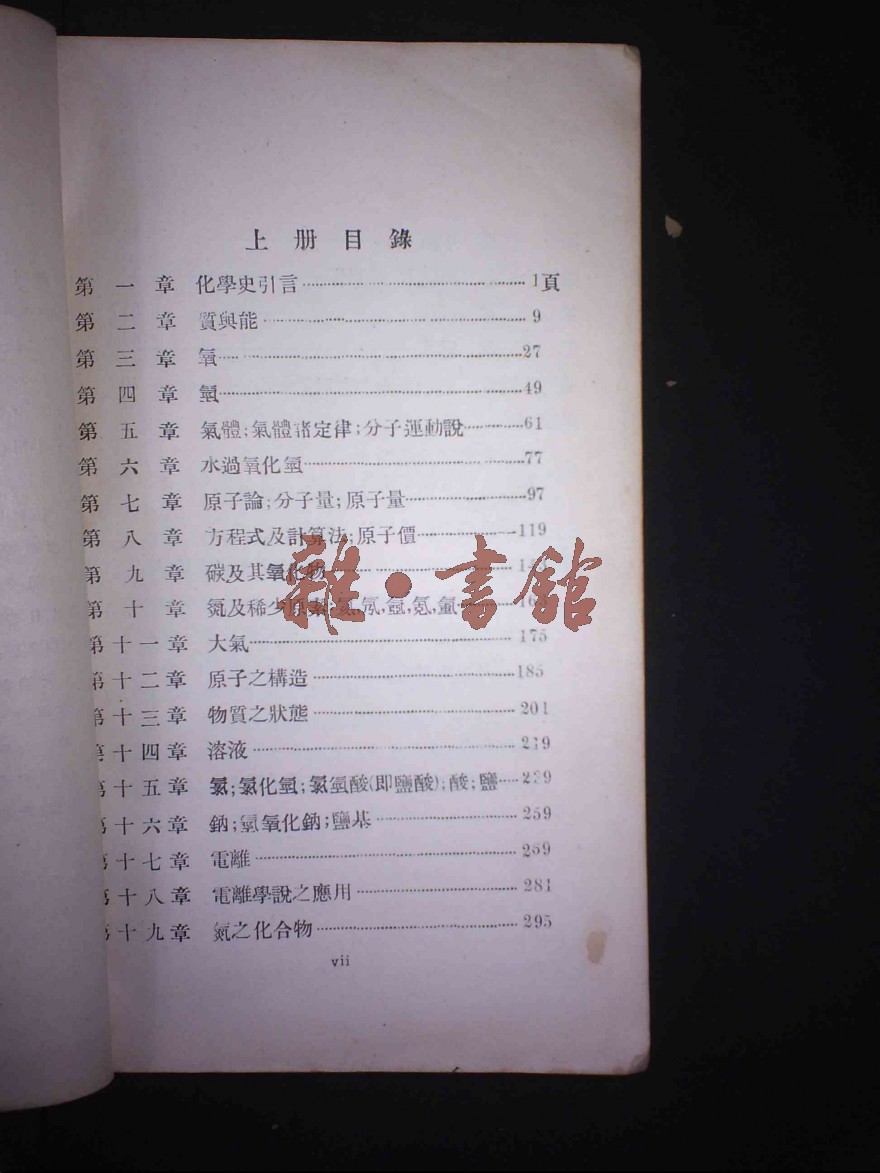 上册目錄
第一章 化學史引言 1頁
第二章 質與能 9
第三章 氧 27
第四章 氫 49
第五章 氣體;氣體諸定律;分子運動說 61
第六章 水過氧化氫 77
第七章 原子論;分子量;原子量 97
第八章 方程式及計算法;原子價 119
第九章 碳及其氧化物
第十章 氮及稀少原素;氦,氖,氬,氪,氙
第十一章 大氣 175
第十二章 原子之構造 185
第十三章 物質之狀態 201
第十四章 溶液 219
第十五章 氯;氯化氫;氯氫酸(即鹽酸);酸;鹽 239
第十六章 鈉;氫氧化鈉;鹽基 259
第十七章 電離 269
第十八章 電離學說之應用 281
第十九章 氮之化合物 295
vii
雜·書館